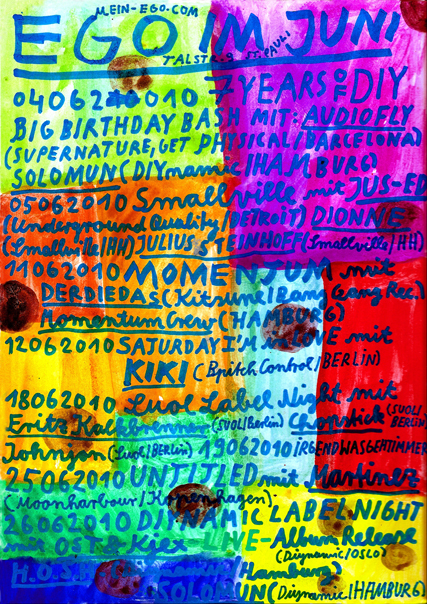 MEIN-EGO.COM
EGO IM JUNI
TALSTR. 9 ST. PAULI
04062010 7 YEARS OF DIY
BIG BIRTHDAY BASH MIT: AUDIOFLY
(SUPERNATURE, GET PHYSICAL/BARCELONA)
SOLOMUN (DIYnamic/HAMBURG)
05062010 Smallville mit JUS-ED
(Underground Quality/DETROIT) DIONNE
(Smallville/HH) JULIUS STEINHOFF (Smallville/HH)
11062010 MOMENTUM mit
DERDIEDAS (Kitsuné/Bang Gang Rec.)
Momentum Crew (HAMBURG)
12062010 SATURDAY I'M IN LOVE mit
KIKI (Bpitch Control/BERLIN)
18062010 Suol Label Night mit
Fritz Kalkbrenner (SUOL/Berlin) Chopstick (SUOL/BERLIN)
Johnjon (Suol/BERLIN) 19062010 IRGENDWASGEHTIMMER
25062010 UNTITLED mit Martinez
(Moonharbour/Kopenhagen)
26062010 DIYNAMIC LABEL NIGHT
mit OST & Kjex LIVE - Album Release
(Diynamic/OSLO)
H.O.S.H. (Diynamic/Hamburg)
SOLOMUN (Diynamic/HAMBURG)